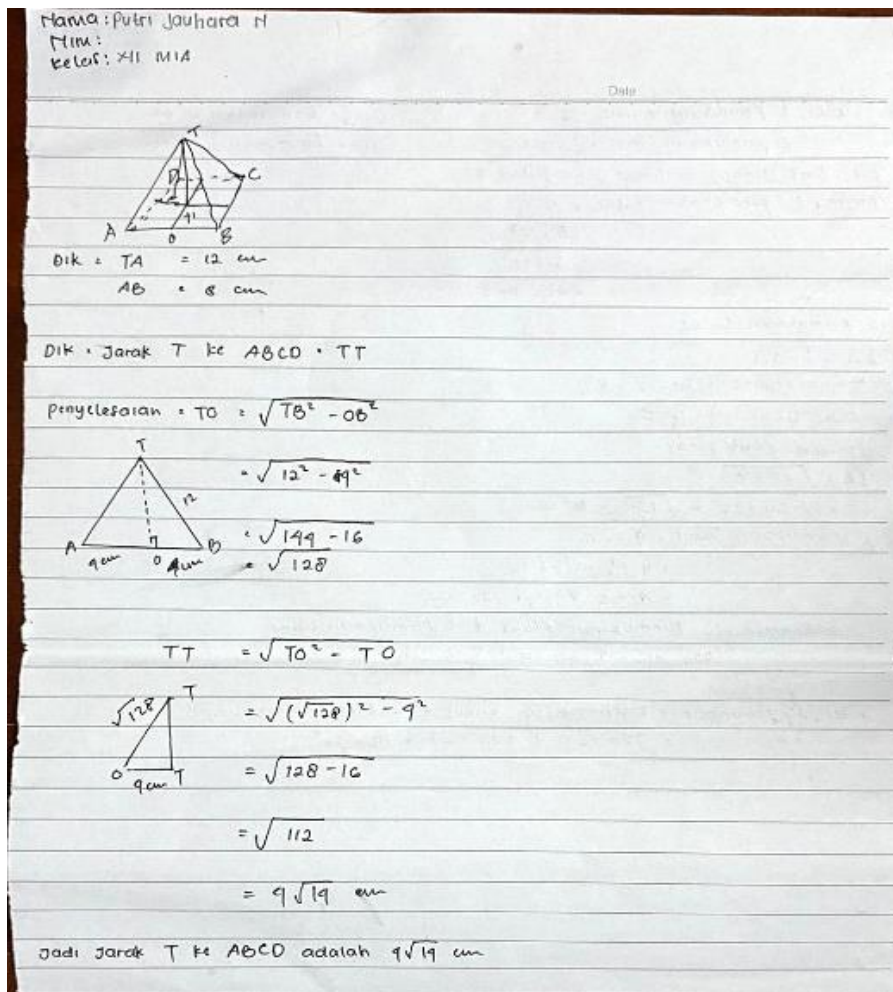 Nama : Putri Jauhara N
Nim :
Kelas : XII MIA
Date
T
D C
T'
A O B
Dik : TA = 12 cm
AB = 8 cm
Dik : Jarak T ke ABCD = TT
Penyelesaian = TO = √TB² - OB²
T
= √12² - 4²
12
= √144 - 16
A O B
4 cm 4 cm
= √128
TT = √TO² - TO
√128 T
= √(√128)² - 4²
O T
4 cm
= √128 - 16
= √112
= 4√14 cm
Jadi Jarak T ke ABCD adalah 4√14 cm